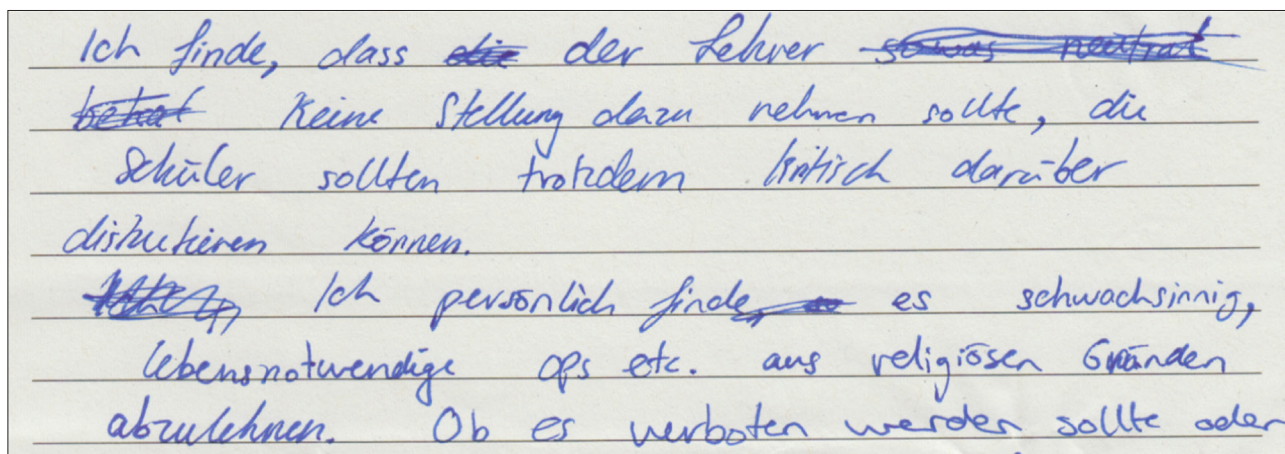 Ich finde, dass die der Lehrer sowas neutral
betrat keine Stellung dazu nehmen sollte, die
Schüler sollten trotzdem kritisch darüber
diskutieren können.
Ich persönlich finde, es schwachsinnig,
lebensnotwendige Ops etc. aus religiösen Gründen
abzulehnen. Ob es verboten werden sollte oder